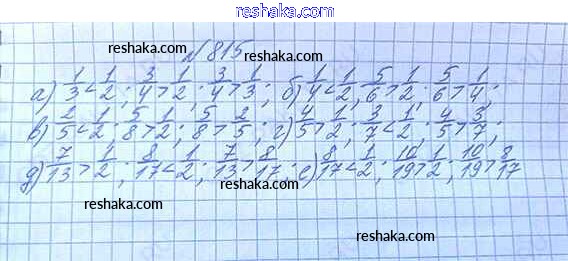 reshaka.com
reshaka.com
№815
reshaka.com
а) 1/3 < 1/2; 3/4 > 1/2; 3/4 > 1/3; б) 1/4 < 1/2; 5/6 > 1/2; 5/6 > 1/4;
reshaka.com
в) 2/5 < 1/2; 5/8 > 1/2; 5/8 > 2/5; г) 4/5 > 1/2; 3/7 < 1/2; 4/5 > 3/7;
д) 7/13 > 1/2; 8/17 < 1/2; 7/13 > 8/17; е) 8/17 < 1/2; 10/19 > 1/2; 10/19 > 8/17
reshaka.com
reshaka.com
reshaka.com
reshaka.com